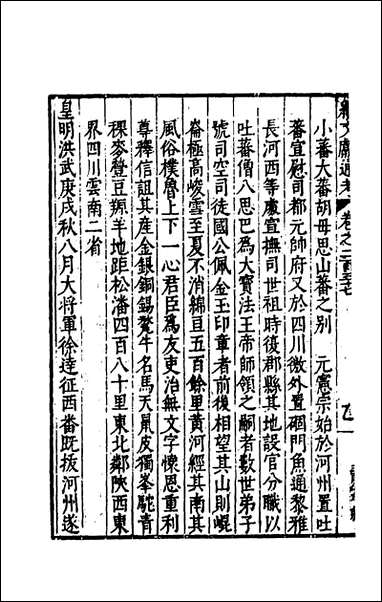 小蕃大蕃胡毋思山蕃之別　元憲宗始於河州置吐
蕃宣慰司都元帥府又於四川徼外置碉門魚通黎雅
長河西等處宣撫司世祖時復郡縣其地設官分職以
吐蕃僧八思巴為大寶法王帝師領之嗣者數世弟子
號司空司徒國公佩金玉印章者前後相望其山則崐
崙極高峻雪至夏不消綿亘五百餘里黃河經其南其
風俗樸魯上下一心君臣為友吏治無文字懷恩重利
尊釋信詛其産金銀銅錫犛牛名馬天鼠皮獨峯駝青
稞麥豋豆羱羊地距松潘四百八十里東北鄰陝西東
界四川雲南二省
皇明洪武庚戌秋八月大將軍徐達征西番既拔河州遂